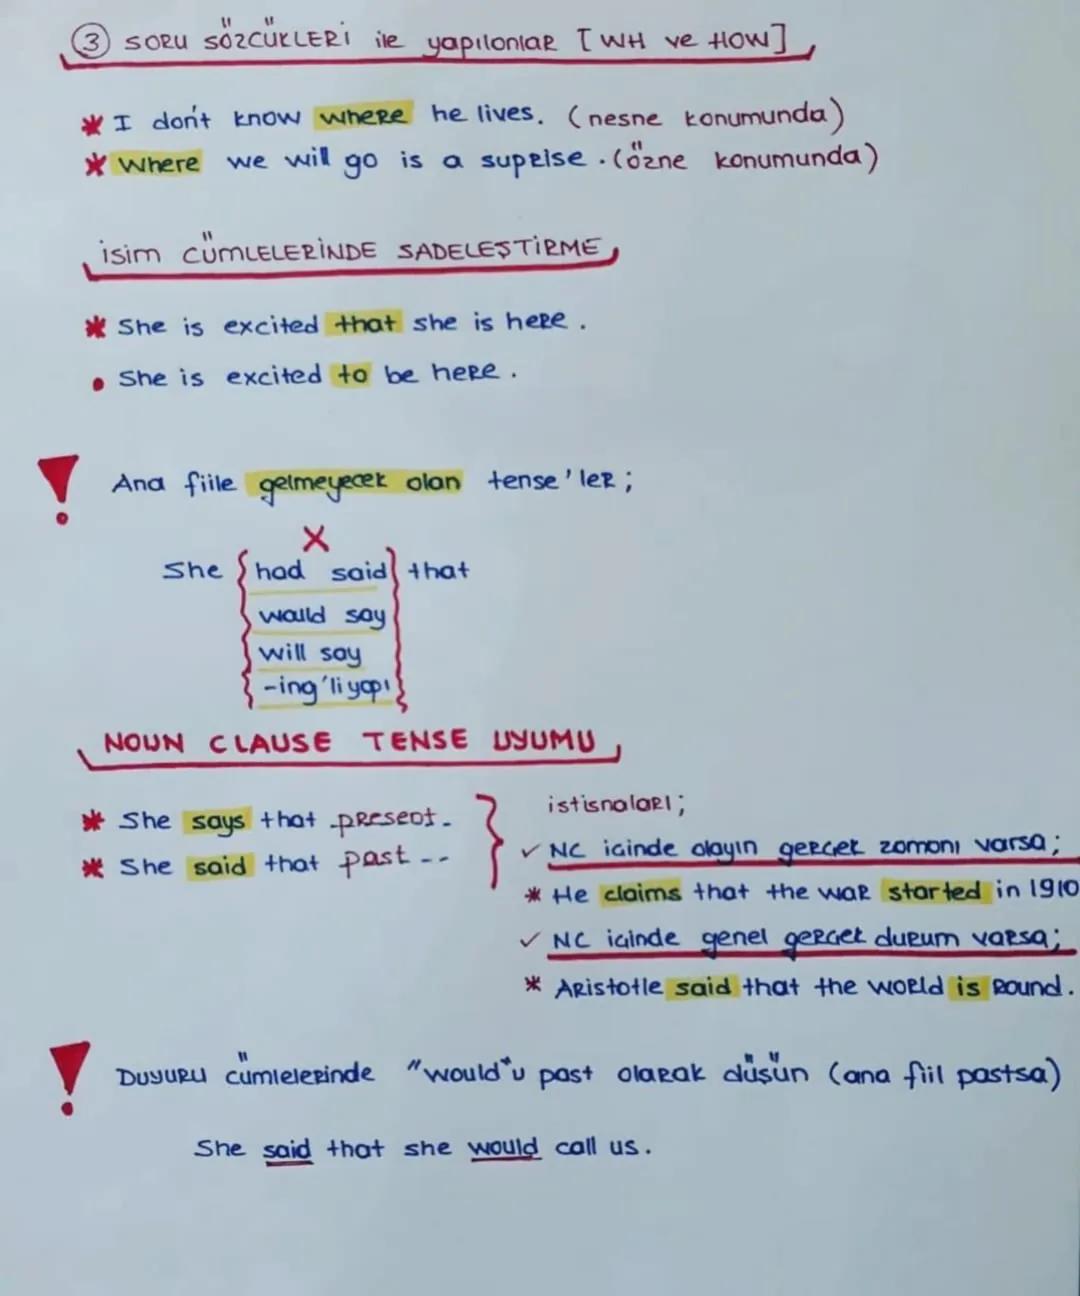 ③ SORU SÖZCÜKLERİ ile yapılanlar [WH ve HOW]
* I don't know where he lives. (nesne konumunda)
* Where we will go is a suprise. (özne konumunda)
isim CÜMLELERİNDE SADELEŞTİRME
* She is excited that she is here.
• She is excited to be here.
! Ana fiile gelmeyecek olan tense'ler;
X
She { had said } that
would say
will say
-ing'li yapı
NOUN CLAUSE TENSE UYUMU
* She says that present..
* She said that past --
istisnaları;
✓ NC içinde olayın gerçek zamanı varsa;
* He claims that the war started in 1910
✓ NC içinde genel gerçek durum varsa;
* Aristotle said that the world is round.
! DUYURU cümlelerinde "would"u past olarak düşün (ana fiil pastsa)
She said that she would call us.